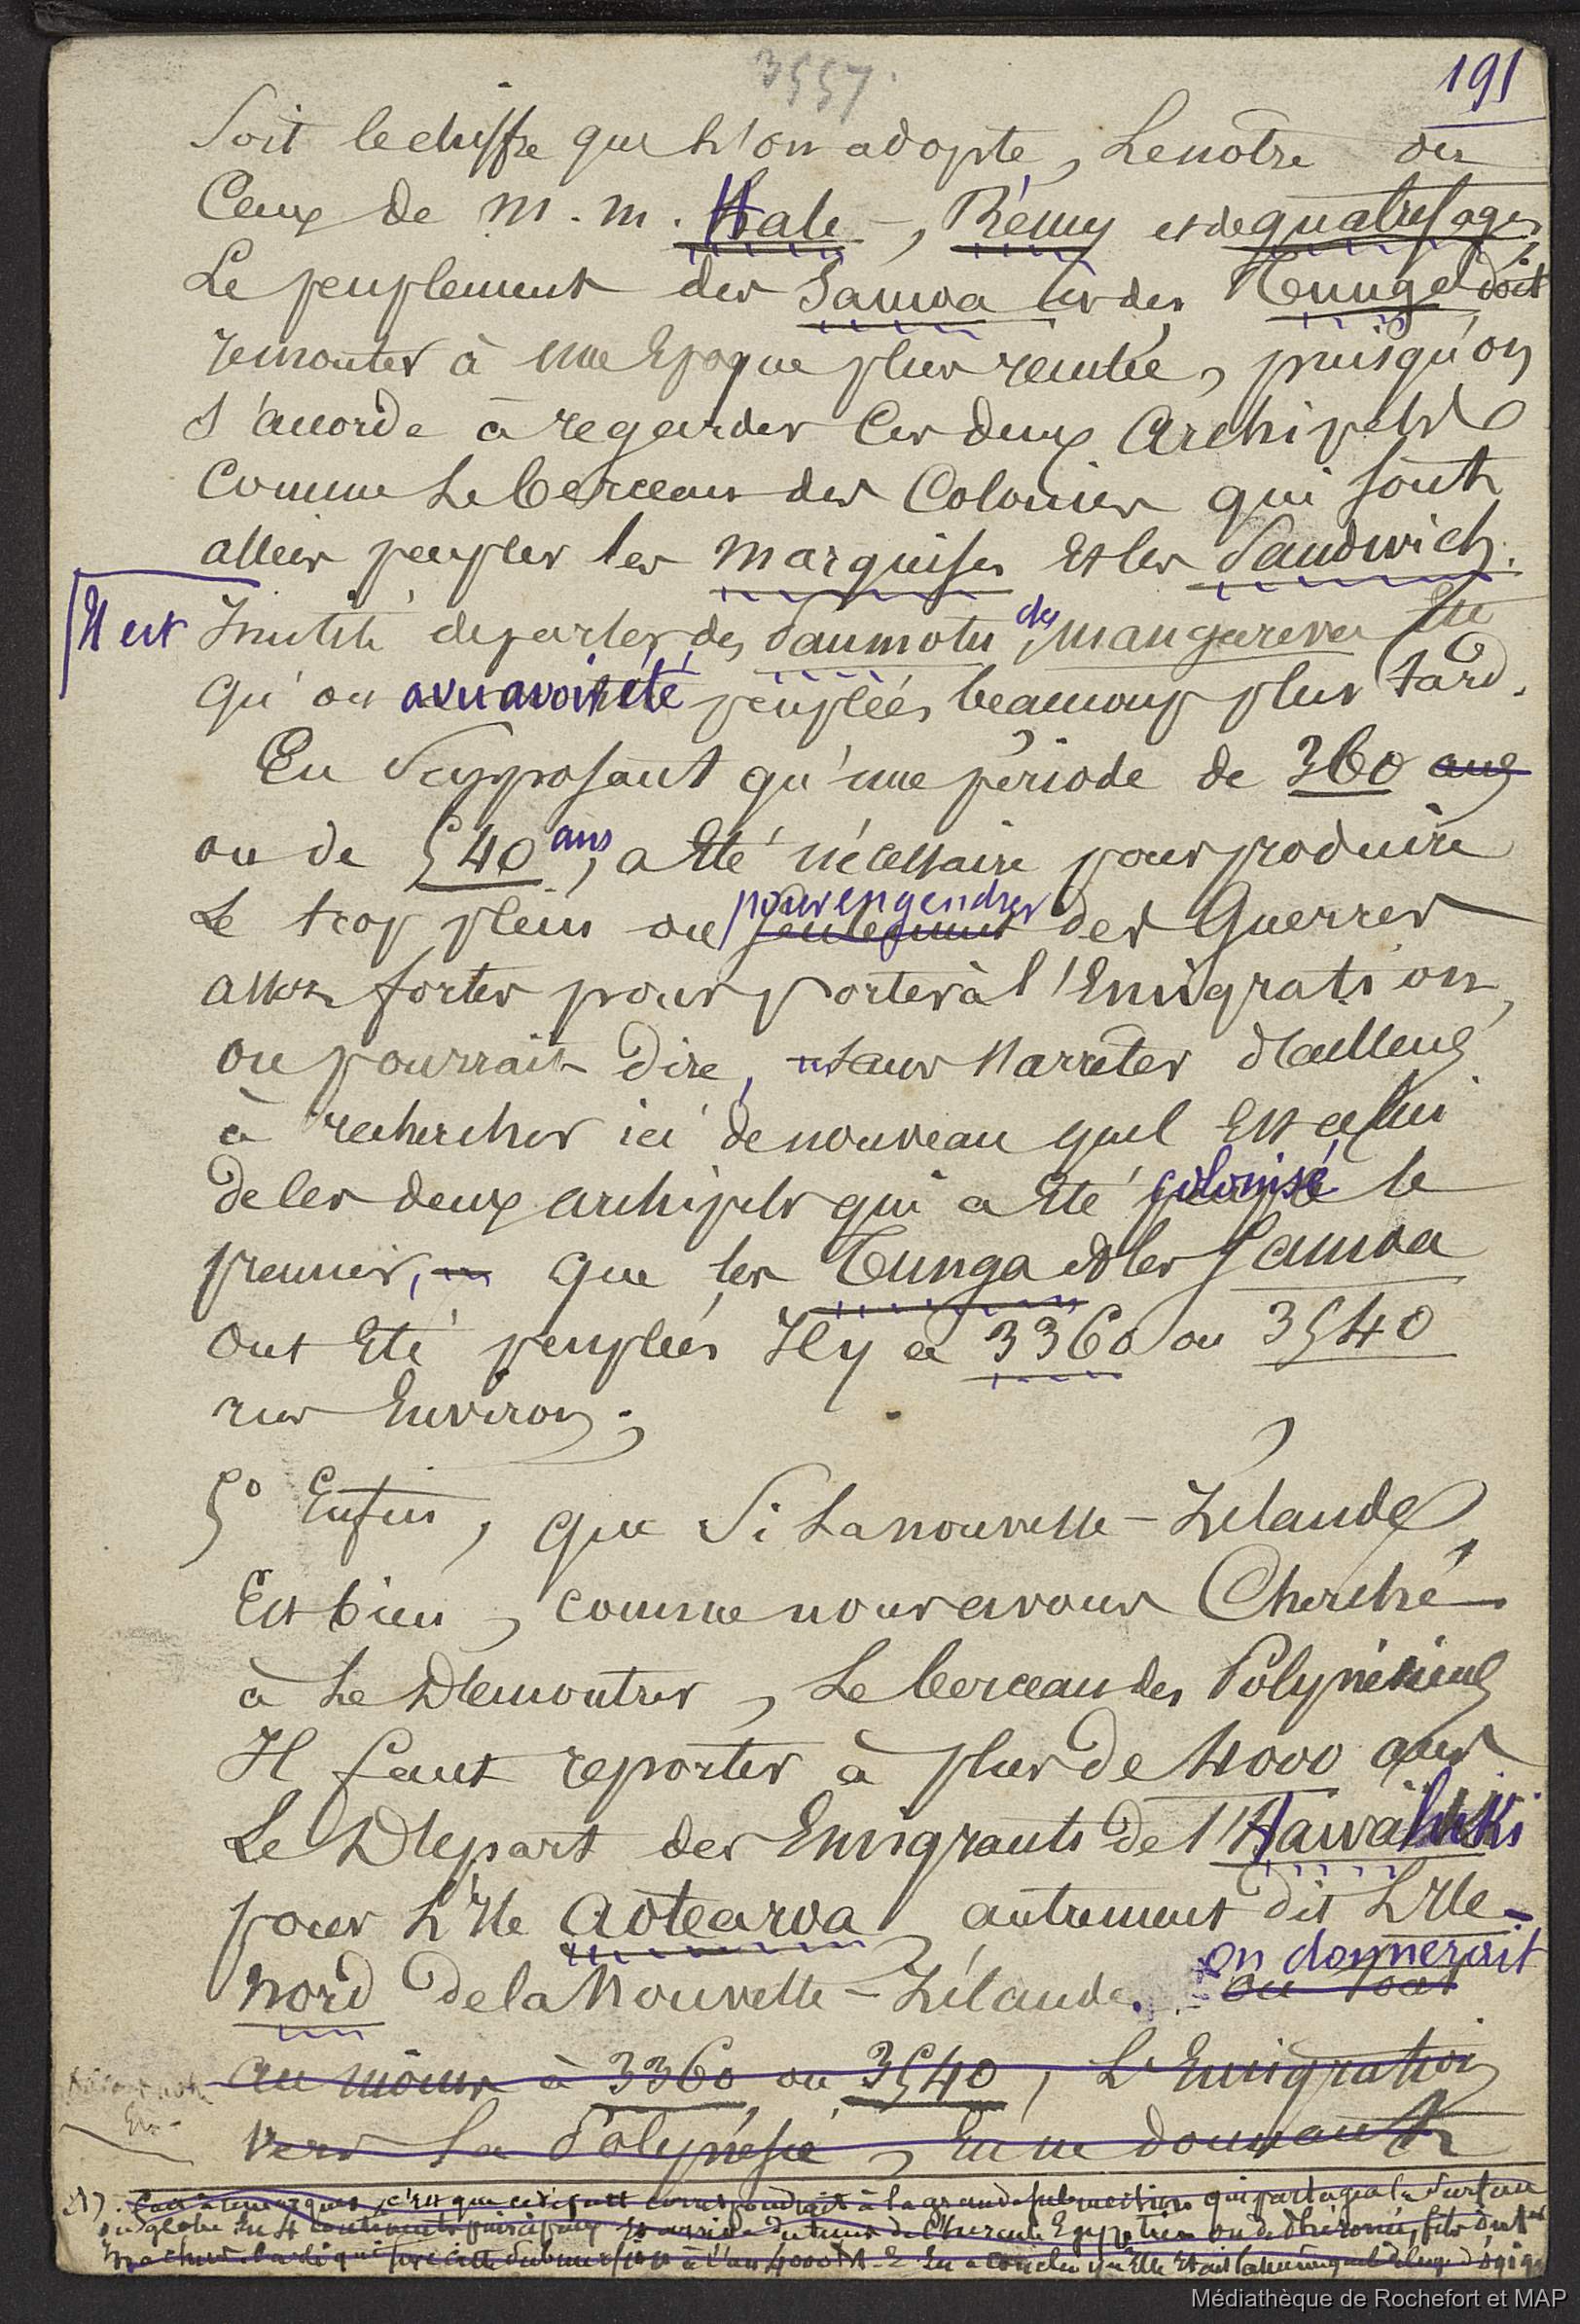 3557.
191
Soit le chiffre que l'on adopte, le nôtre ou
Ceux de M. M. Hale, Rémy et de quatrefages,
Le peuplement des Samoa et des Tunga doit
remonter à une Epoque plus reculée, puisqu'on
s'accorde à regarder ces deux Archipels
Comme le berceau des Colonies qui sont
allées peupler les marquises et les Sandwich.
Il est Inutile de parler des Paumotu, des mangareva etc
qu'on a vu avoir été peuplées beaucoup plus tard.
En supposant qu'une période de 360 ans
ou de 540 ans, a été nécessaire pour produire
Le trop plein ou pour engendrer seulement des Guerres
assez fortes pour porter à l'Emigration,
on pourrait dire, sans s'arrêter d'ailleurs
à rechercher ici de nouveau quel est celui
de les deux archipels qui a été colonisé le
premier, que les Tunga et les Samoa
ont été peuplées Il y a 3360 ou 3540
ans Environ;
5° Enfin, que si la nouvelle-Zélande,
Est bien, comme nous avons Cherché
à le Démontrer, Le berceau des Polynésiens
Il faut reporter à plus de 4000 ans
Le Départ des Emigrants de l'Hawahiki
pour l'Ile Aotearoa, autrement dit L'Ile-
Nord de la Nouvelle-Zélande. on donnerait
au moins à 3360 ou 3540, L'Emigration
vers la Polynésie, En ne donnant
c'est que
à la grande submersion qui partagea la surface
du globe en 4 continents principaux
cette submersion à l'an 4000